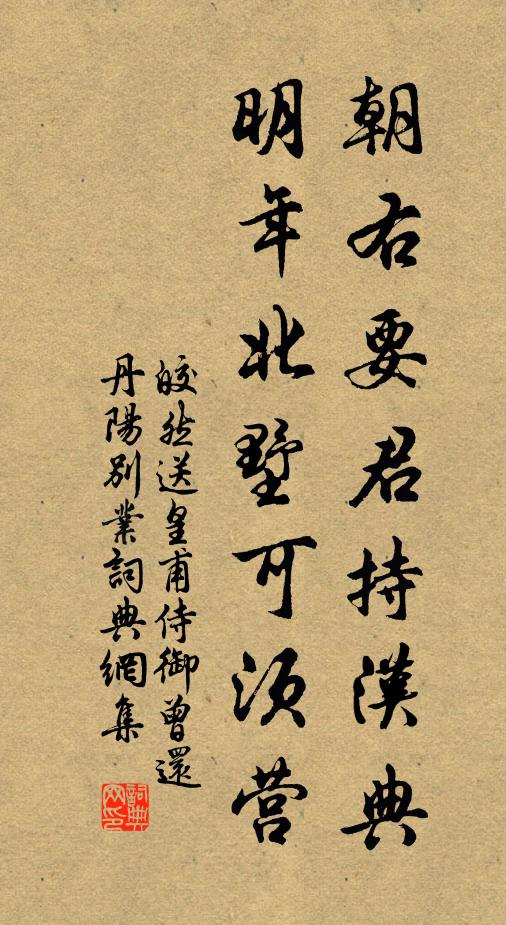 朝右要君持漢典
明年北墅可須营
皎然送皇甫侍御曾還
丹陽别業詞典網集
詞典网印